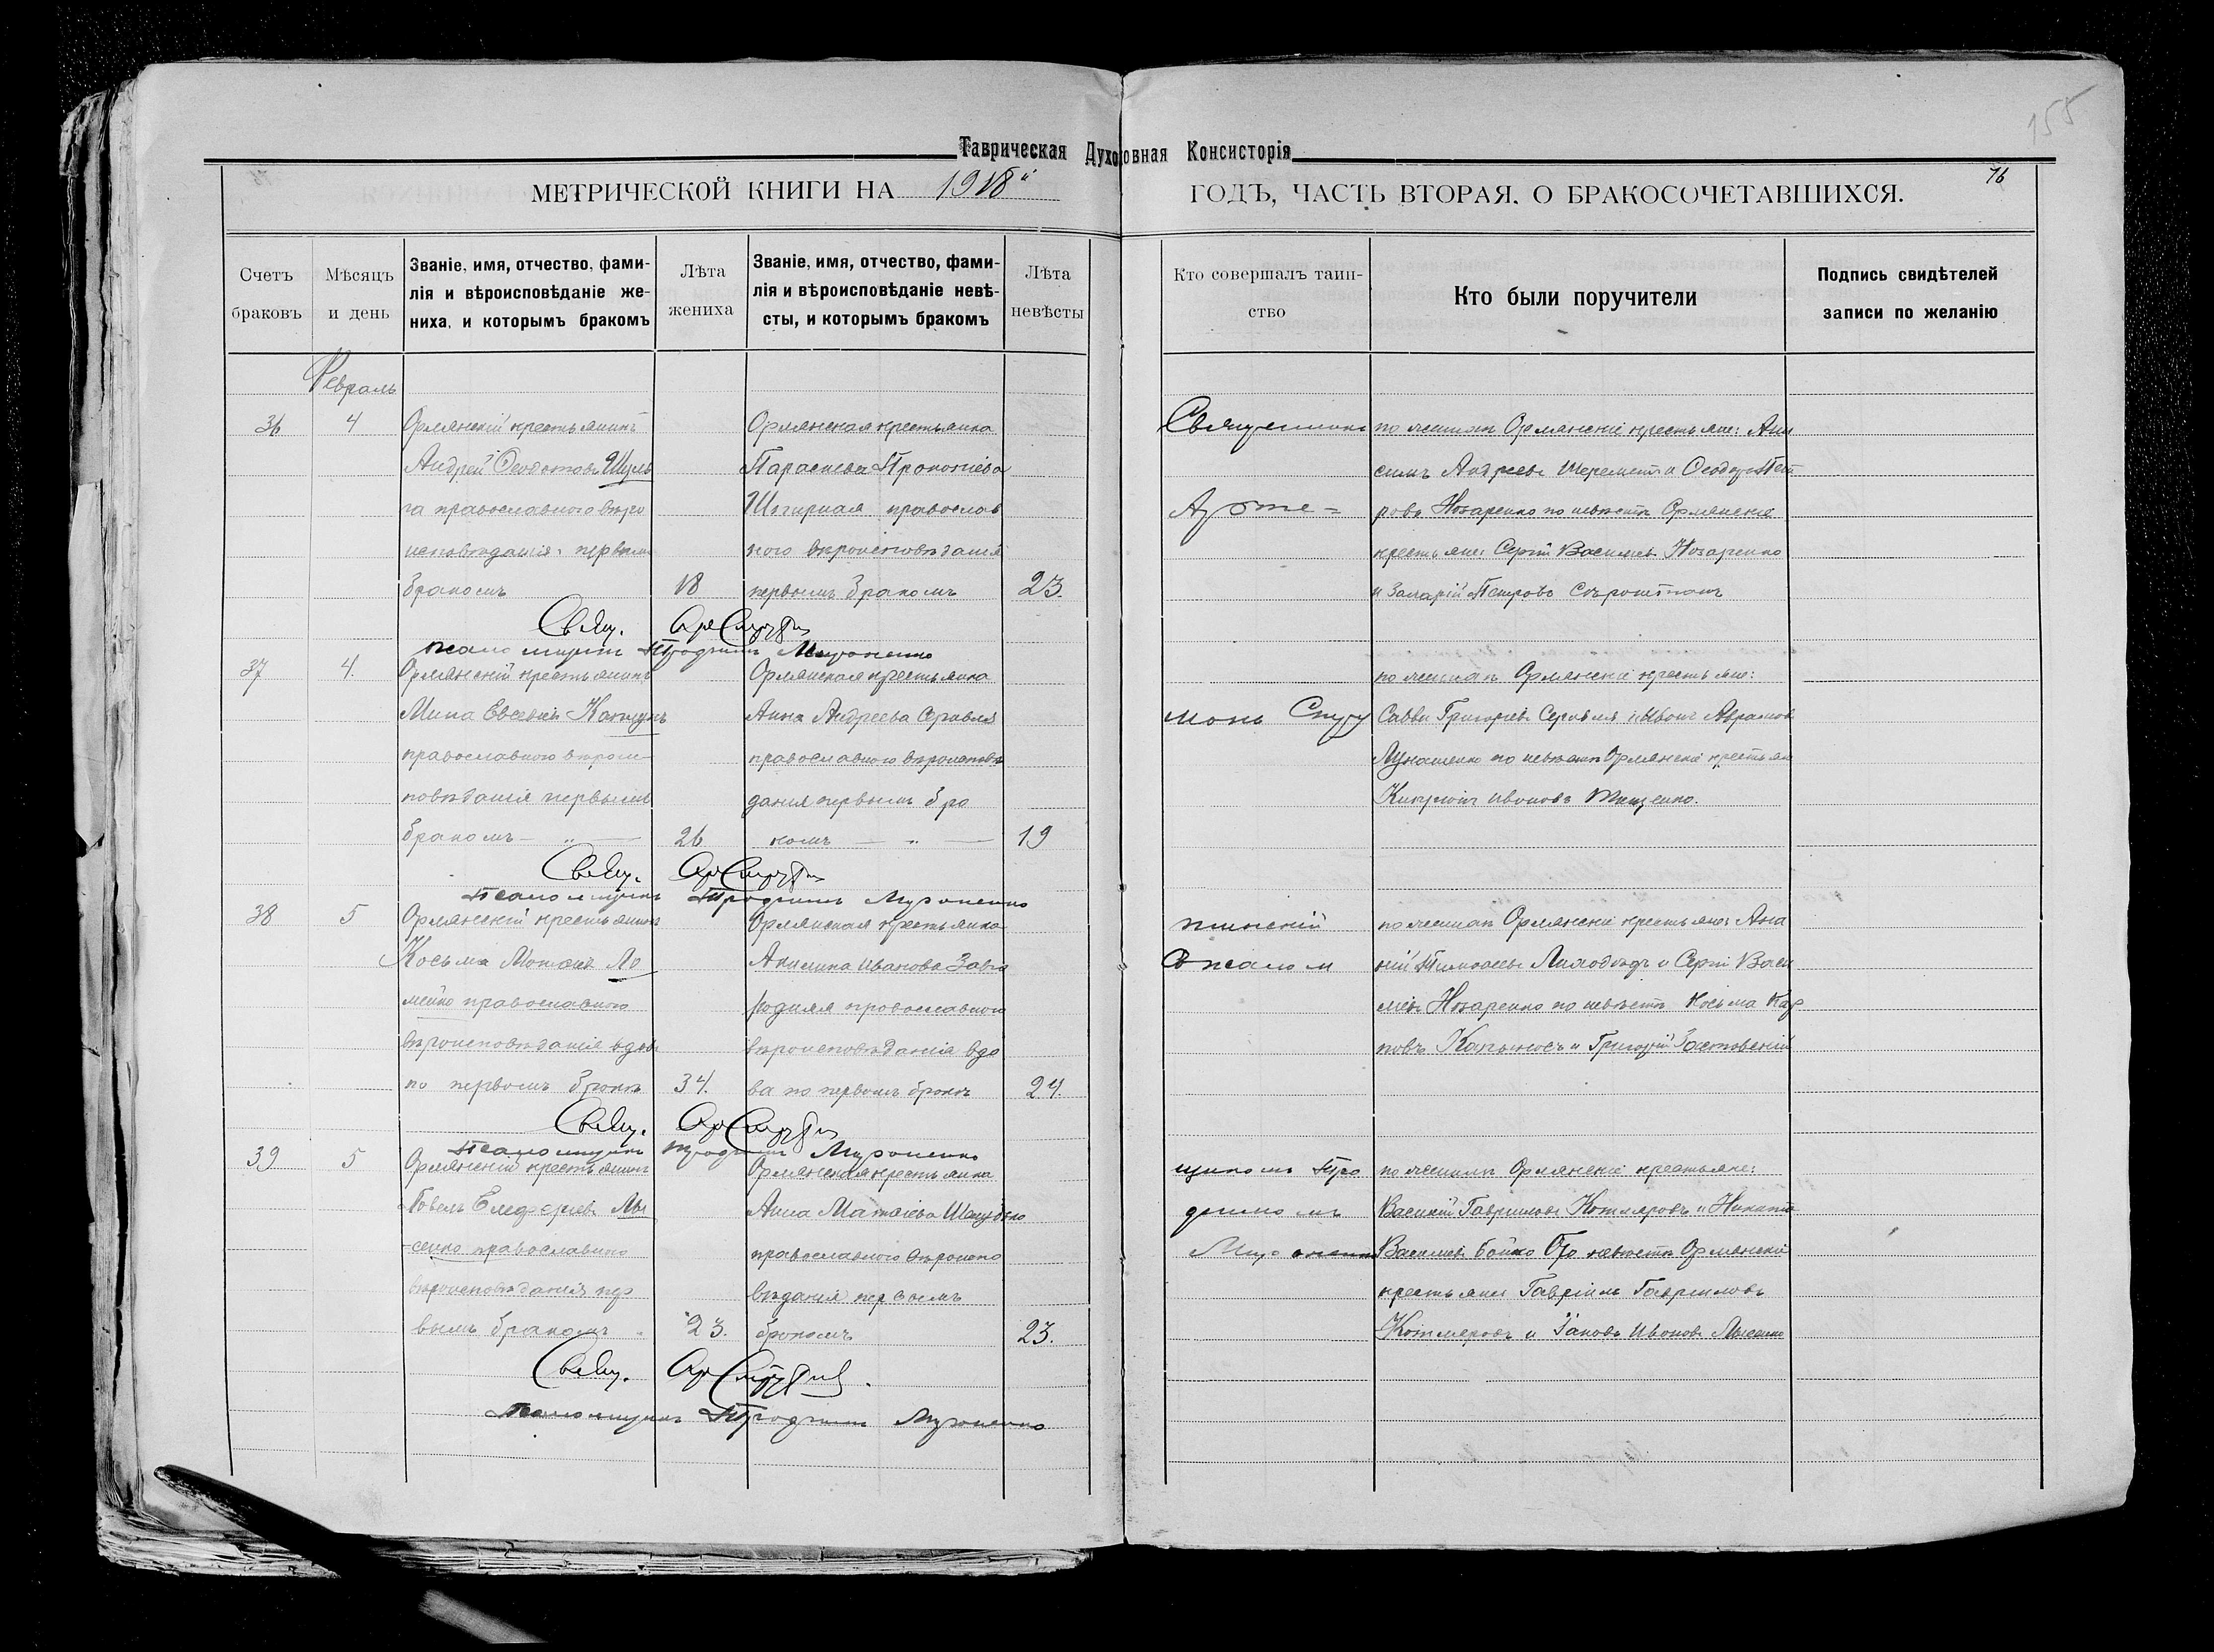 155
Таврическая Духовная Консисторія
76
МЕТРИЧЕСКОЙ КНИГИ НА 1918й ГОДЪ, ЧАСТЬ ВТОРАЯ, О БРАКОСОЧЕТАВШИХСЯ.
Счетъ браковъ
Мѣсяцъ и день
Званіе, имя, отчество, фами-
лія и вѣроисповѣданіе же-
ниха, и которымъ бракомъ
Лѣта жениха
Званіе, имя, отчество, фами-
лія и вѣроисповѣданіе невѣ-
сты, и которымъ бракомъ
Лѣта невѣсты
Кто совершалъ таин-
ство
Кто были поручители
Подпись свидѣтелей
записи по желанію
Февраль
36
4
Орлянскій крестьянинъ
Андрей Феодотовъ Шуль
га православнаго вѣро
исповѣданія первымъ
бракомъ
18
Орлянская крестьянка
Параскева Прокопіева
православ
наго вѣроисповѣданія
первымъ бракомъ
23.
Священникъ
по женихѣ Орлянскіе крестьяне: Ани
симъ Андреевъ Шереметъ и Феодоръ Пет
ровъ Назаренко по невѣстѣ Орлянскіе
крестьяне Сергій Васильевъ Назаренко
и Захарій Петровъ
Свящ.
Псаломщикъ Трофимъ Мироненко
37
4.
Орлянскій крестьянинъ
Мина Евсевіевъ
православнаго вѣроис
повѣданія первымъ
бракомъ — „ —
26
Орлянская крестьянка
Анна Андреева Серовая
православнаго вѣроисповѣ
данія первымъ бра
комъ — „ —
19
Арте=
монъ
по женихѣ Орлянскіе крестьяне:
Савва Григорьевъ и Иванъ Аврамовъ
Лукашенко по невѣстѣ Орлянскіе крестьяне
Ивановъ Тищенко.
Свящ.
Псаломщикъ Трофимъ Мироненко
38
5
Орлянскій крестьянинъ
Косьма Ло
мейко православнаго
вѣроисповѣданія вдов
по первомъ бракѣ
34.
Орлянская крестьянка
Акилина Иванова Заве
родняя православнаго
вѣроисповѣданія вдо
ва по первомъ бракѣ
24.
съ псалом
по женихѣ Орлянскіе крестьяне: Ана
ній Тимофеевъ и Сергій Васи
льевъ Назаренко по невѣстѣ Косьма Кар
повъ и Григорій
Свящ.
Псаломщикъ Трофимъ Мироненко
39
5
Орлянскій крестьянинъ
Павелъ Елеферіевъ Лы
сенко православнаго
вѣроисповѣданія пер
вымъ бракомъ
23.
Орлянская крестьянка
Анна Матвіева
православнаго вѣроиспо
вѣданія первымъ
бракомъ
23.
щикомъ Тро
фимомъ
Мироненко
по женихѣ Орлянскіе крестьяне:
Василій Гавриловъ Котляровъ и Никита
Васильевъ Бойко По невѣстѣ Орлянскіе
крестьяне Гавріилъ Гавриловъ
Котляровъ и Іаковъ Ивановъ Лысенко
Свящ.
Псаломщикъ Трофимъ Мироненко